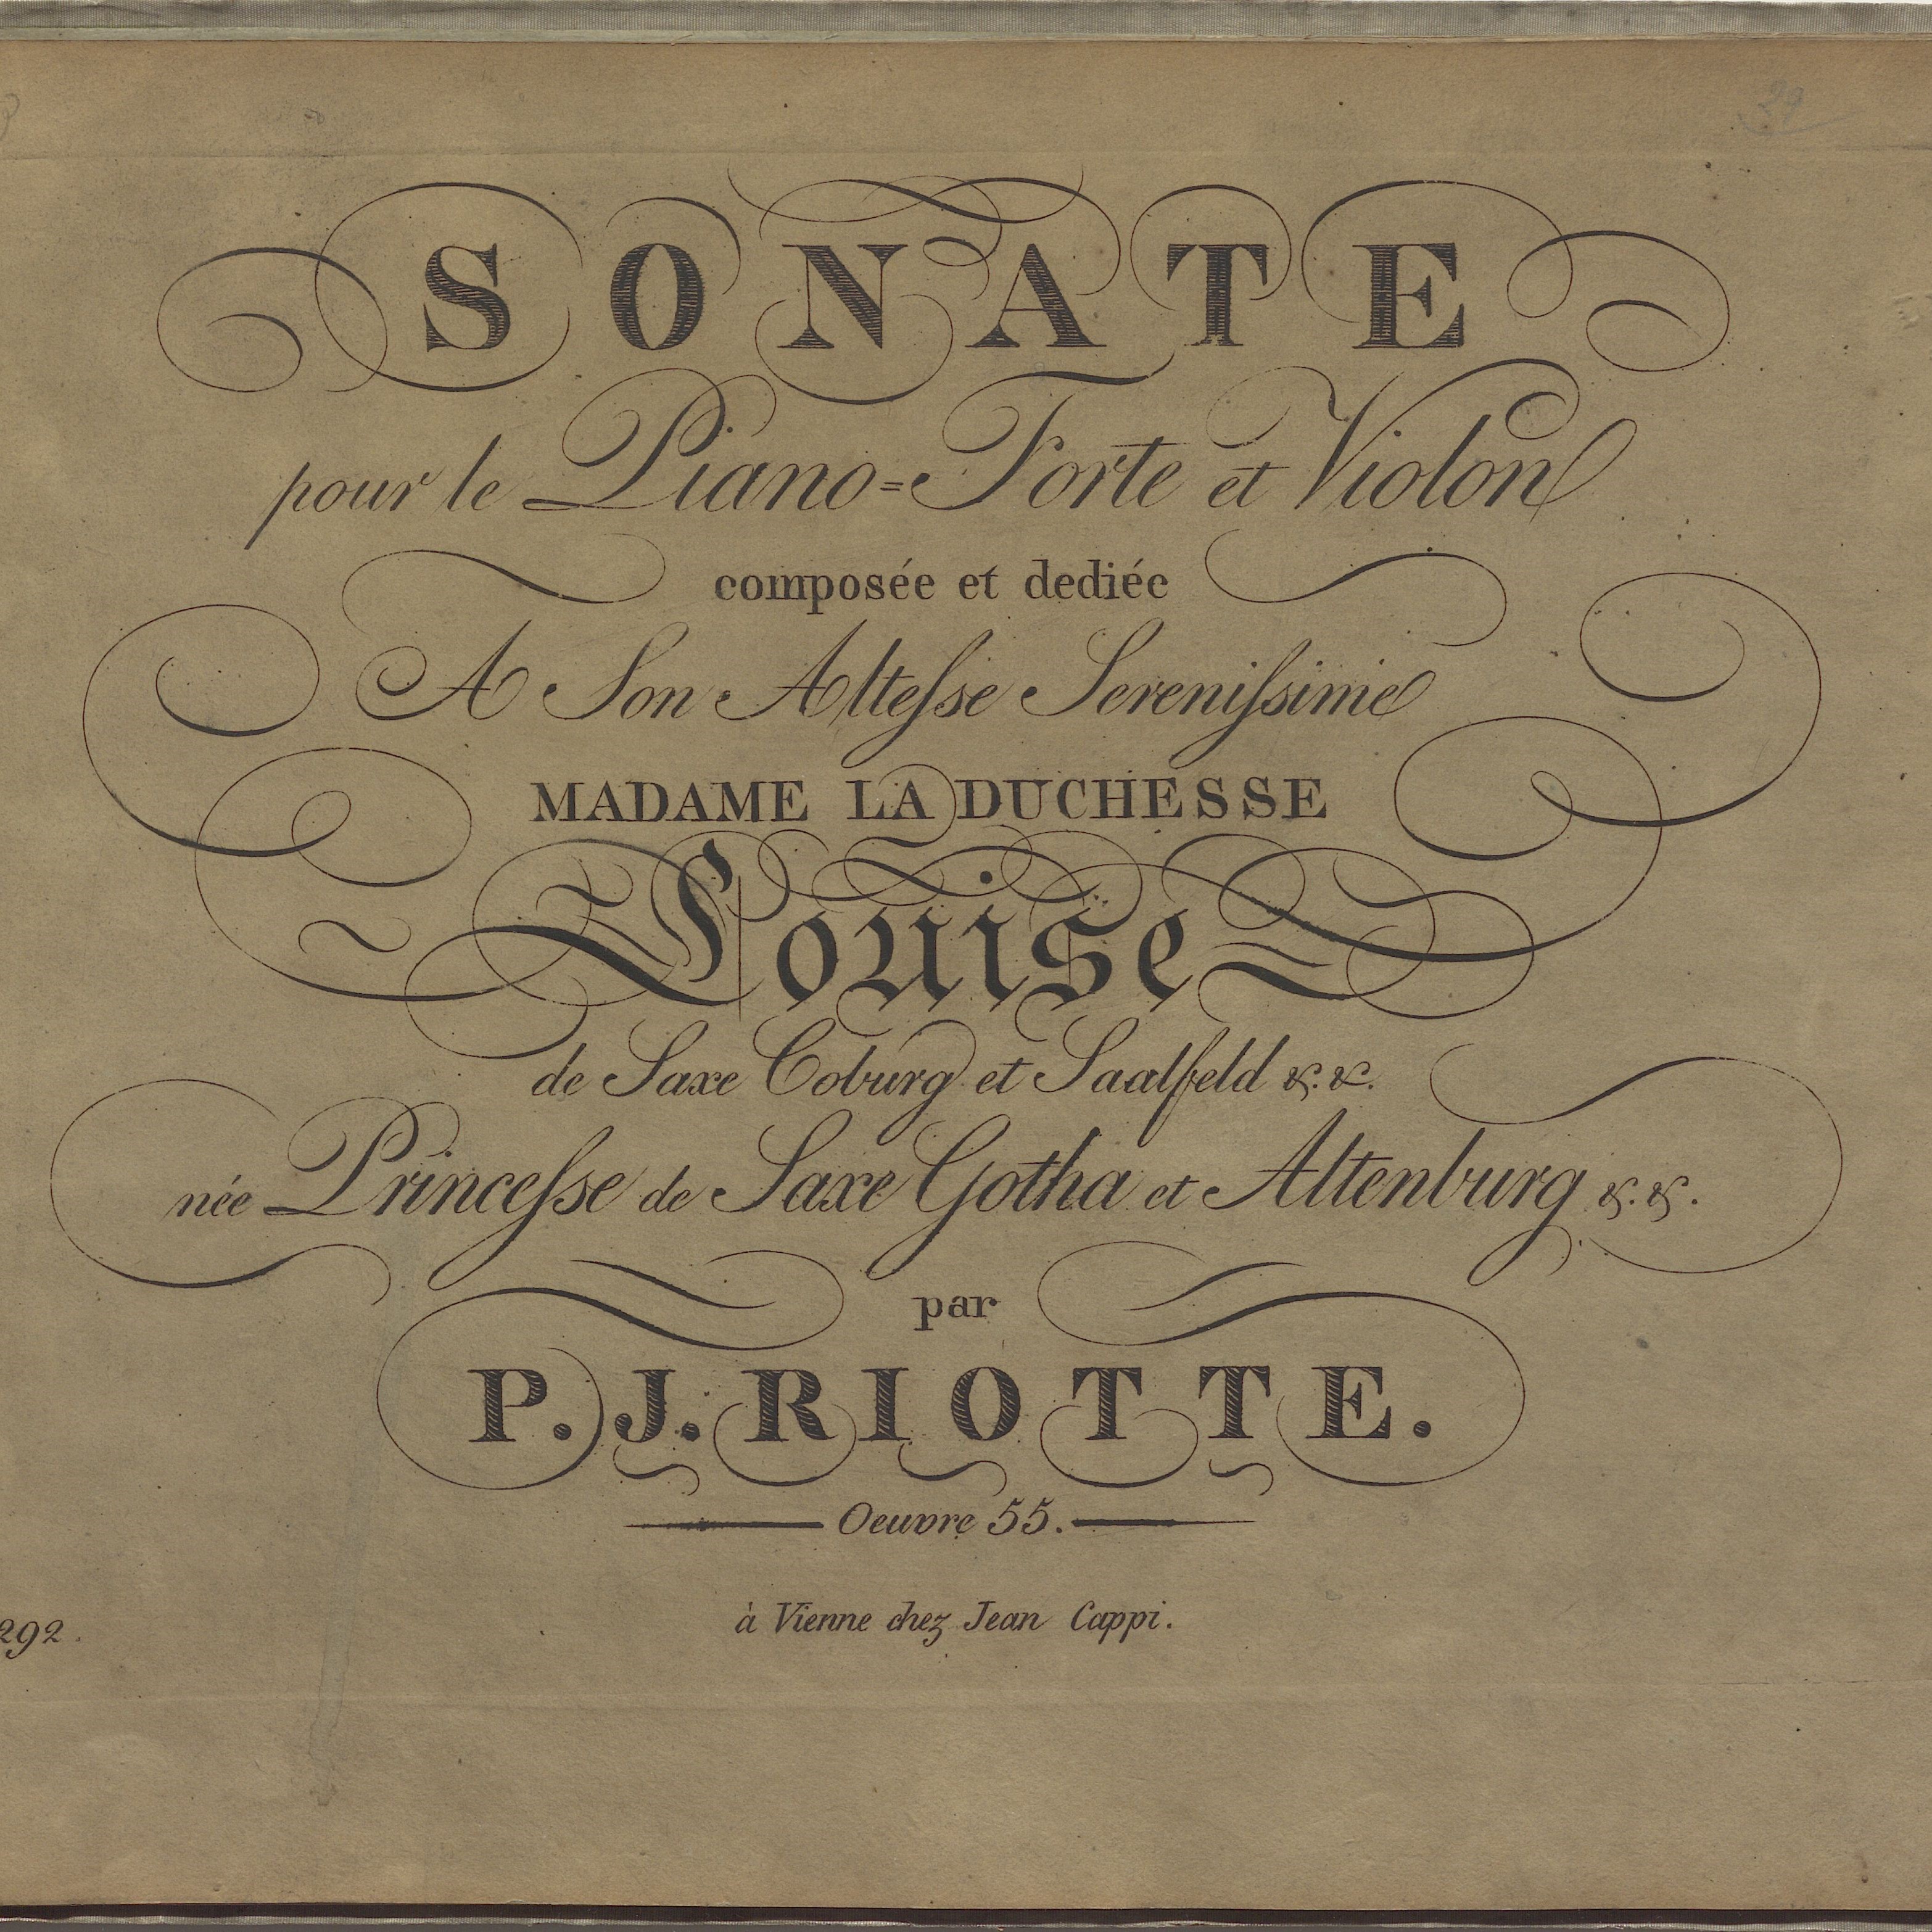 SONATE
pour le Piano=Forte et Violon
composée et dediée
A Son Altesse Serenissime
MADAME LA DUCHESSE
Louise
de Saxe Coburg et Saalfeld &. &.
née Princesse de Saxe Gotha et Altenburg &. &.
par
P. J. RIOTTE.
Oeuvre 55.
à Vienne chez Jean Cappi.
292.